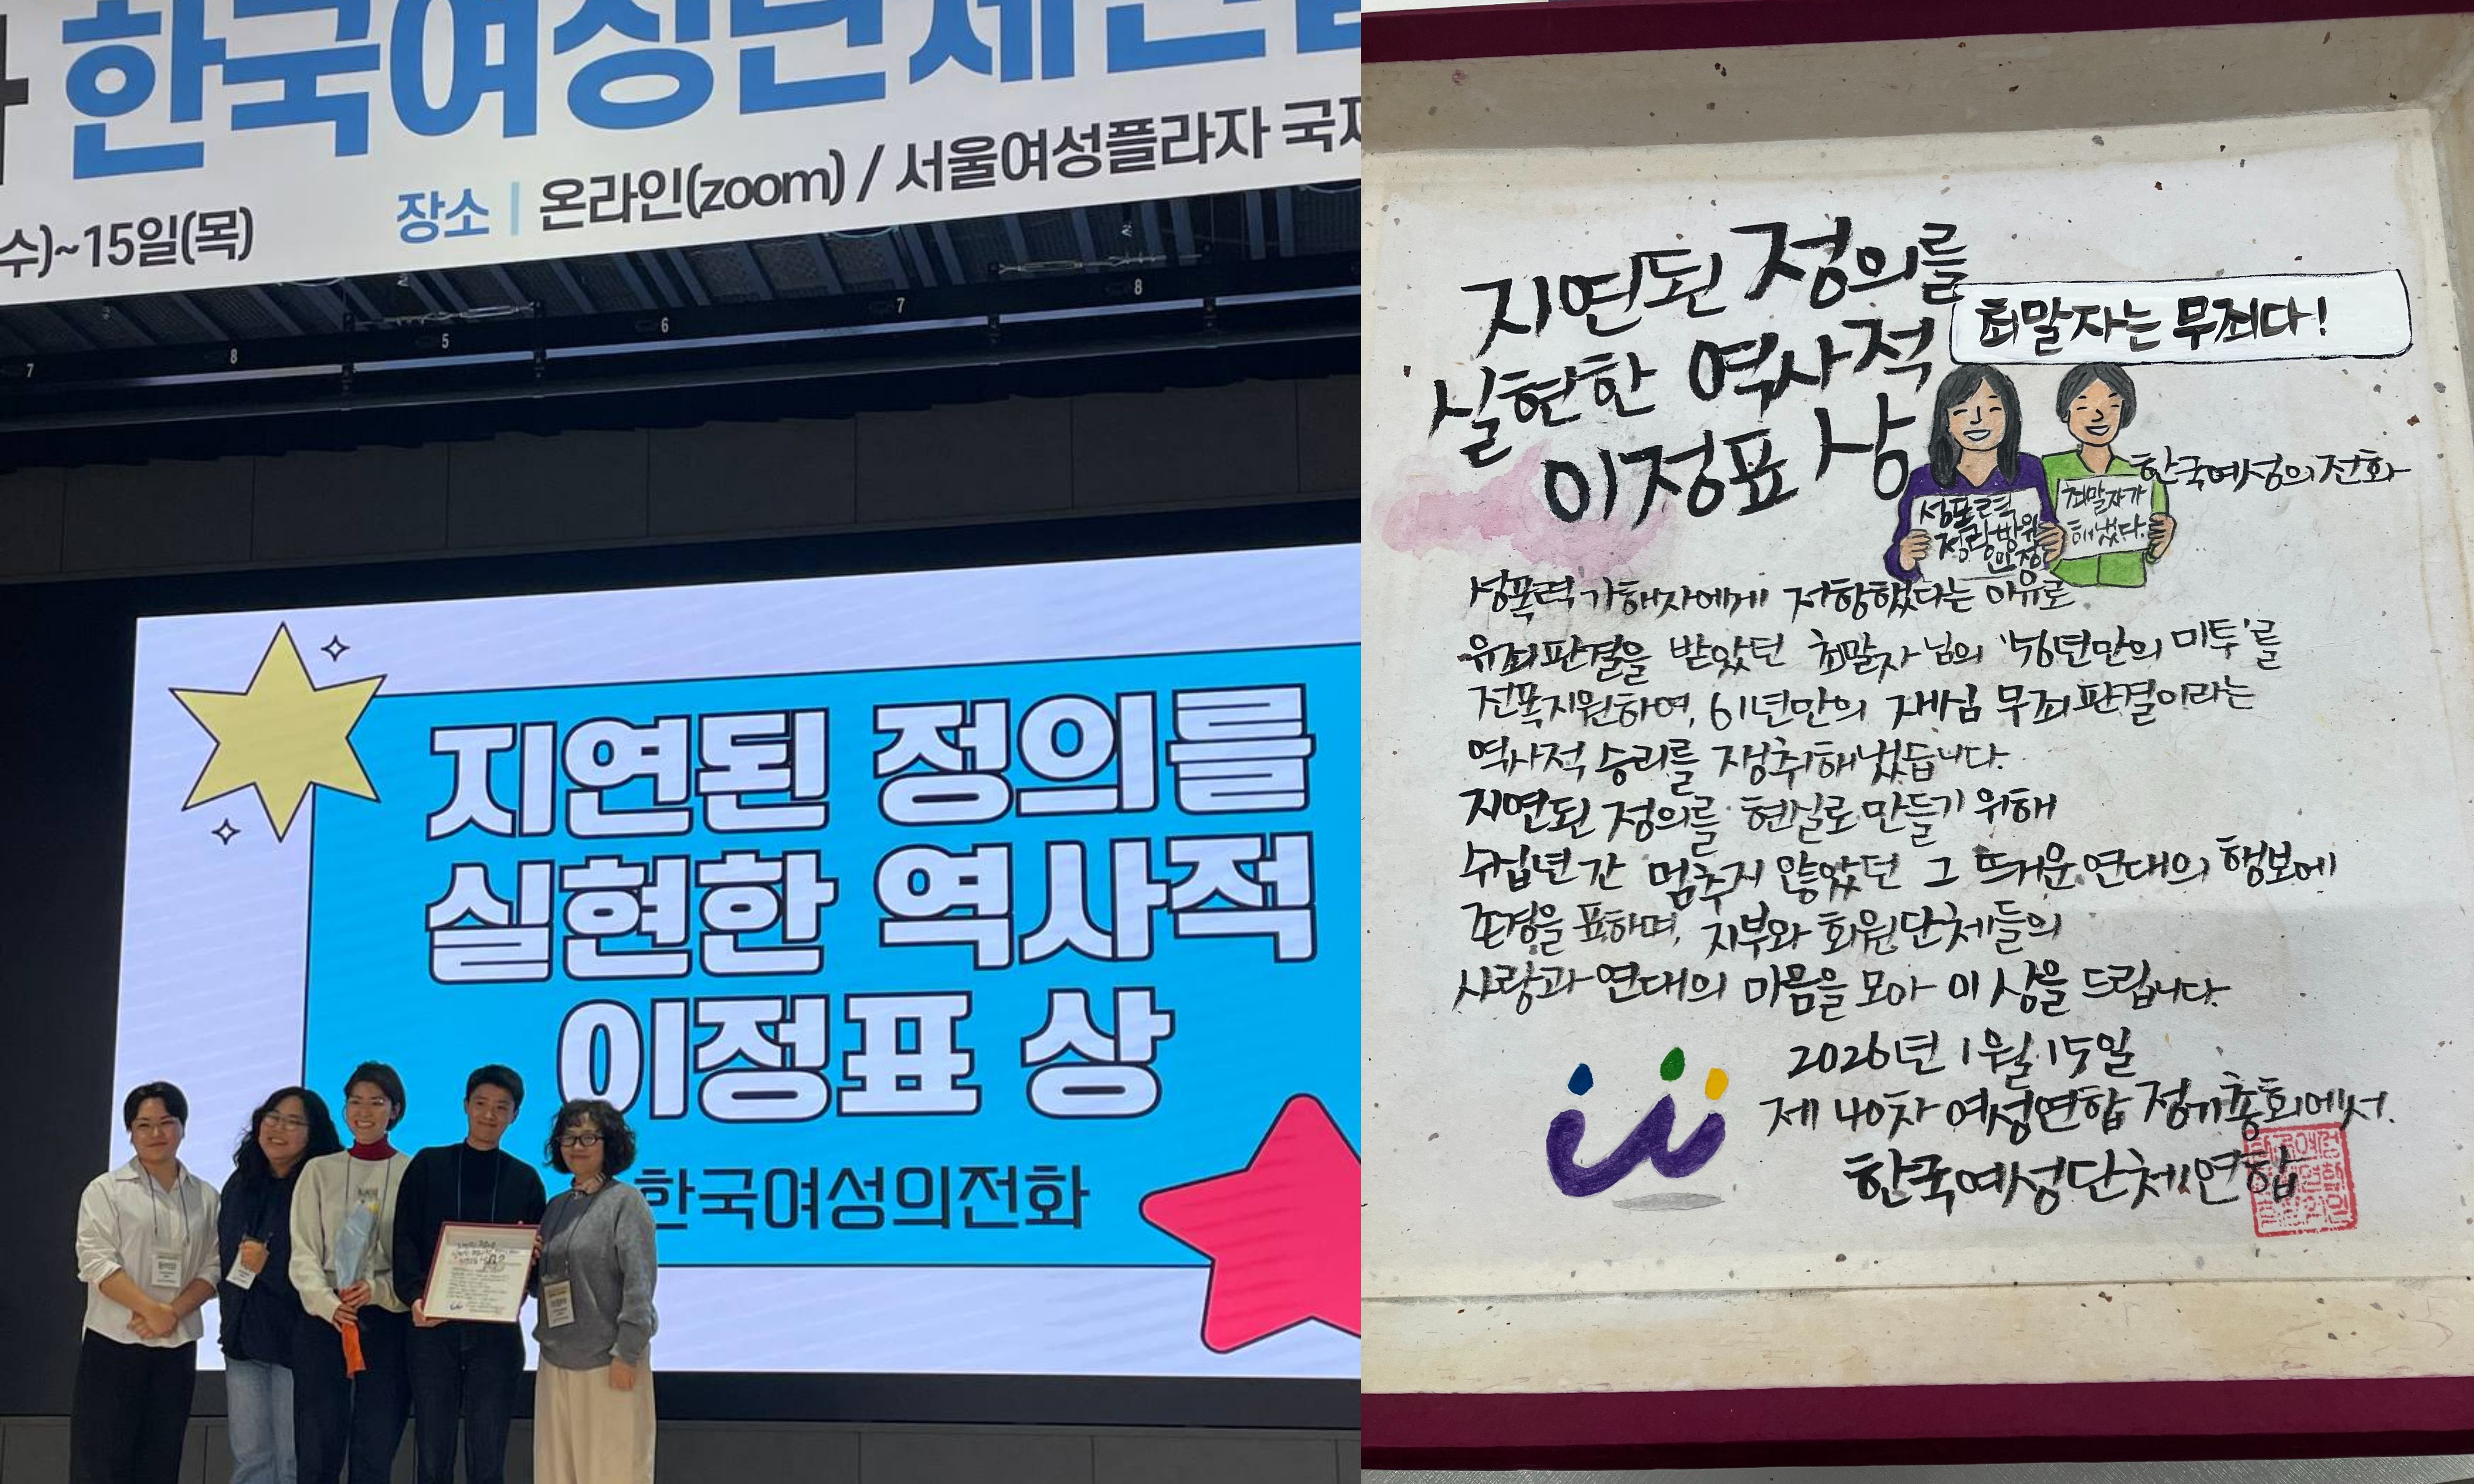 한국여성단체연
수)~15일(목)
장소 | 온라인(zoom) / 서울여성플라자 국제
7
8
5
6
7
8
지연된 정의를
실현한 역사적
이정표 상
한국여성의전화
지연된 정의를
실현한 역사적
이정표 상
최말자는 무죄다!
한국여성의전화
성폭력
정당방위
인정
최말자가
해냈다.
성폭력 가해자에게 저항했다는 이유로
유죄판결을 받았던 최말자 님의 '56년만의 미투'를
전폭지원하여, 61년만의 재심 무죄판결이라는
역사적 승리를 쟁취해냈습니다.
지연된 정의를 현실로 만들기 위해
수십년 간 멈추지 않았던 그 뜨거운 연대의 행보에
존경을 표하며, 지부와 회원단체들의
사랑과 연대의 마음을 모아 이 상을 드립니다.
2026년 1월 15일
제 40차 여성연합 정기총회에서.
한국여성단체연합